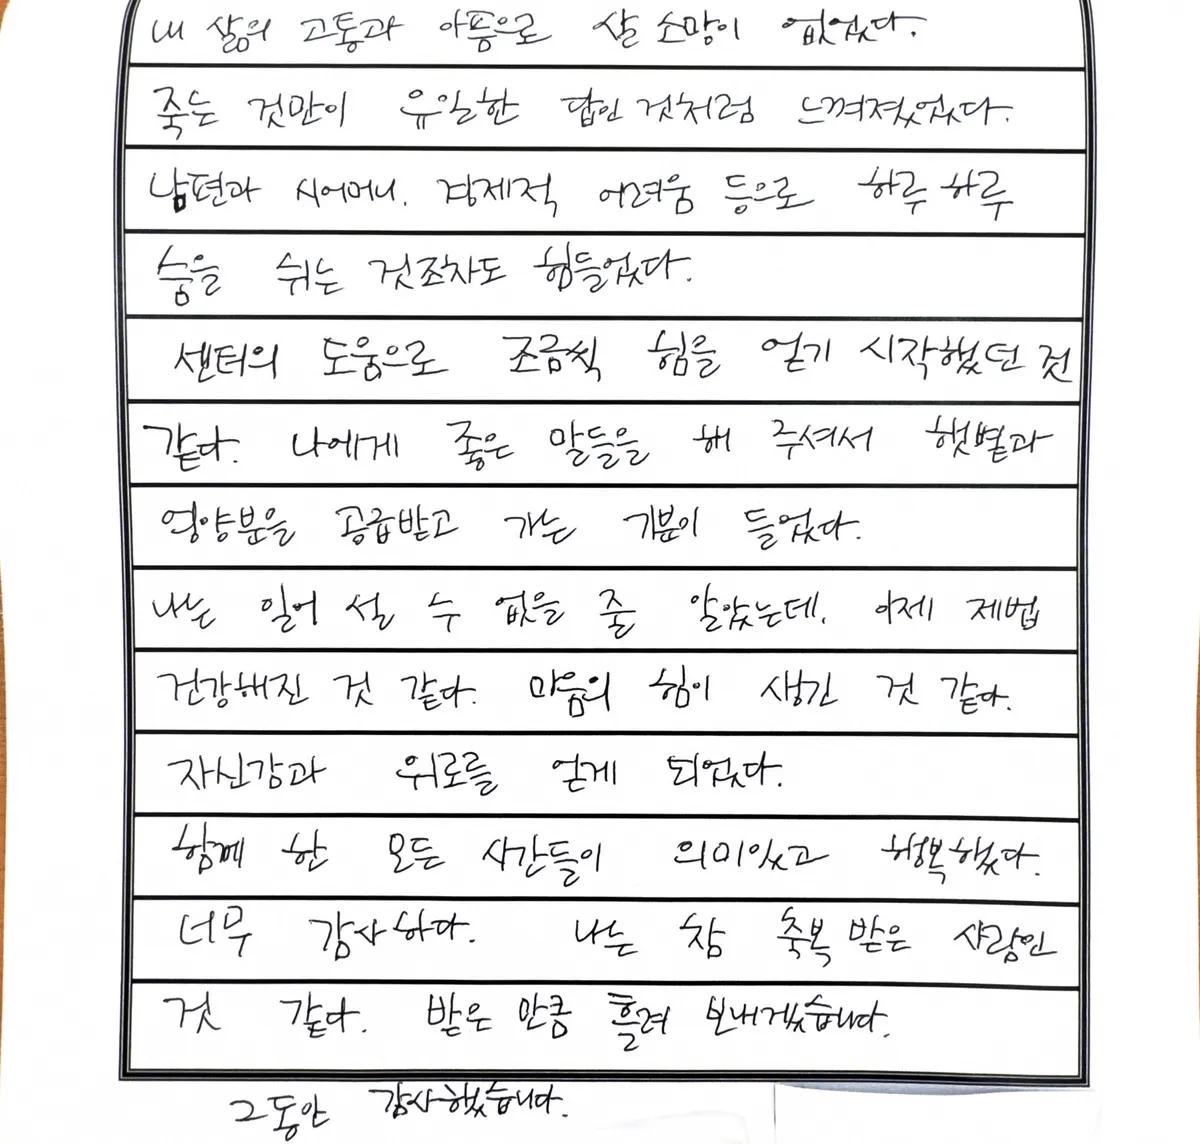 내 삶의 고통과 아픔으로 살 소망이 없었다.
죽는 것만이 유일한 답인 것처럼 느껴졌었다.
남편과 시어머니, 경제적 어려움 등으로 하루 하루
숨을 쉬는 것조차도 힘들었다.
센터의 도움으로 조금씩 힘을 얻기 시작했던 것
같다. 나에게 좋은 말들을 해 주셔서 햇볕과
영양분을 공급받고 가는 기분이 들었다.
나는 일어 설 수 없을 줄 알았는데, 이제 제법
건강해진 것 같다. 마음의 힘이 생긴 것 같다.
자신감과 위로를 얻게 되었다.
함께 한 모든 시간들이 의미있고 행복했다.
너무 감사하다. 나는 참 축복 받은 사람인
것 같다. 받은 만큼 흘려 보내겠습니다.
그동안 감사했습니다.